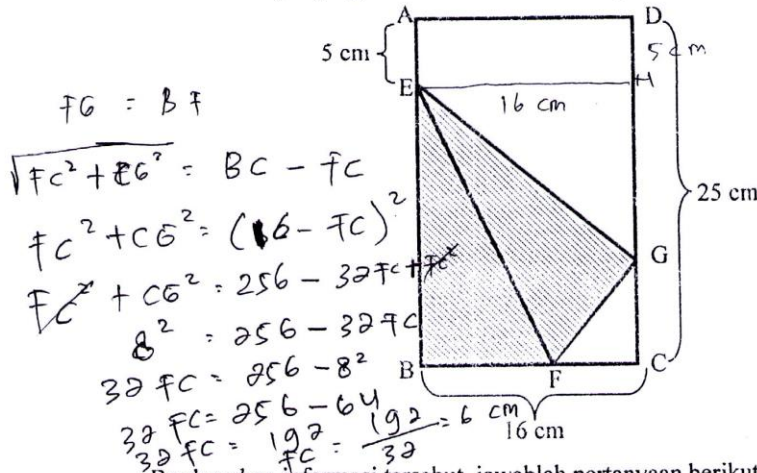 A
D
5 cm
5 cm
E
H
16 cm
FG = BF
√FC² + CG² = BC - FC
FC² + CG² = (16 - FC)²
FC² + CG² = 256 - 32FC + FC²
8² = 256 - 32 FC
32 FC = 256 - 8²
32 FC = 256 - 64
32 FC = 192
FC = 192/32 = 6 cm
25 cm
G
B
F
C
16 cm
Berdasarkan informasi tersebut, jawablah pertanyaan berikut